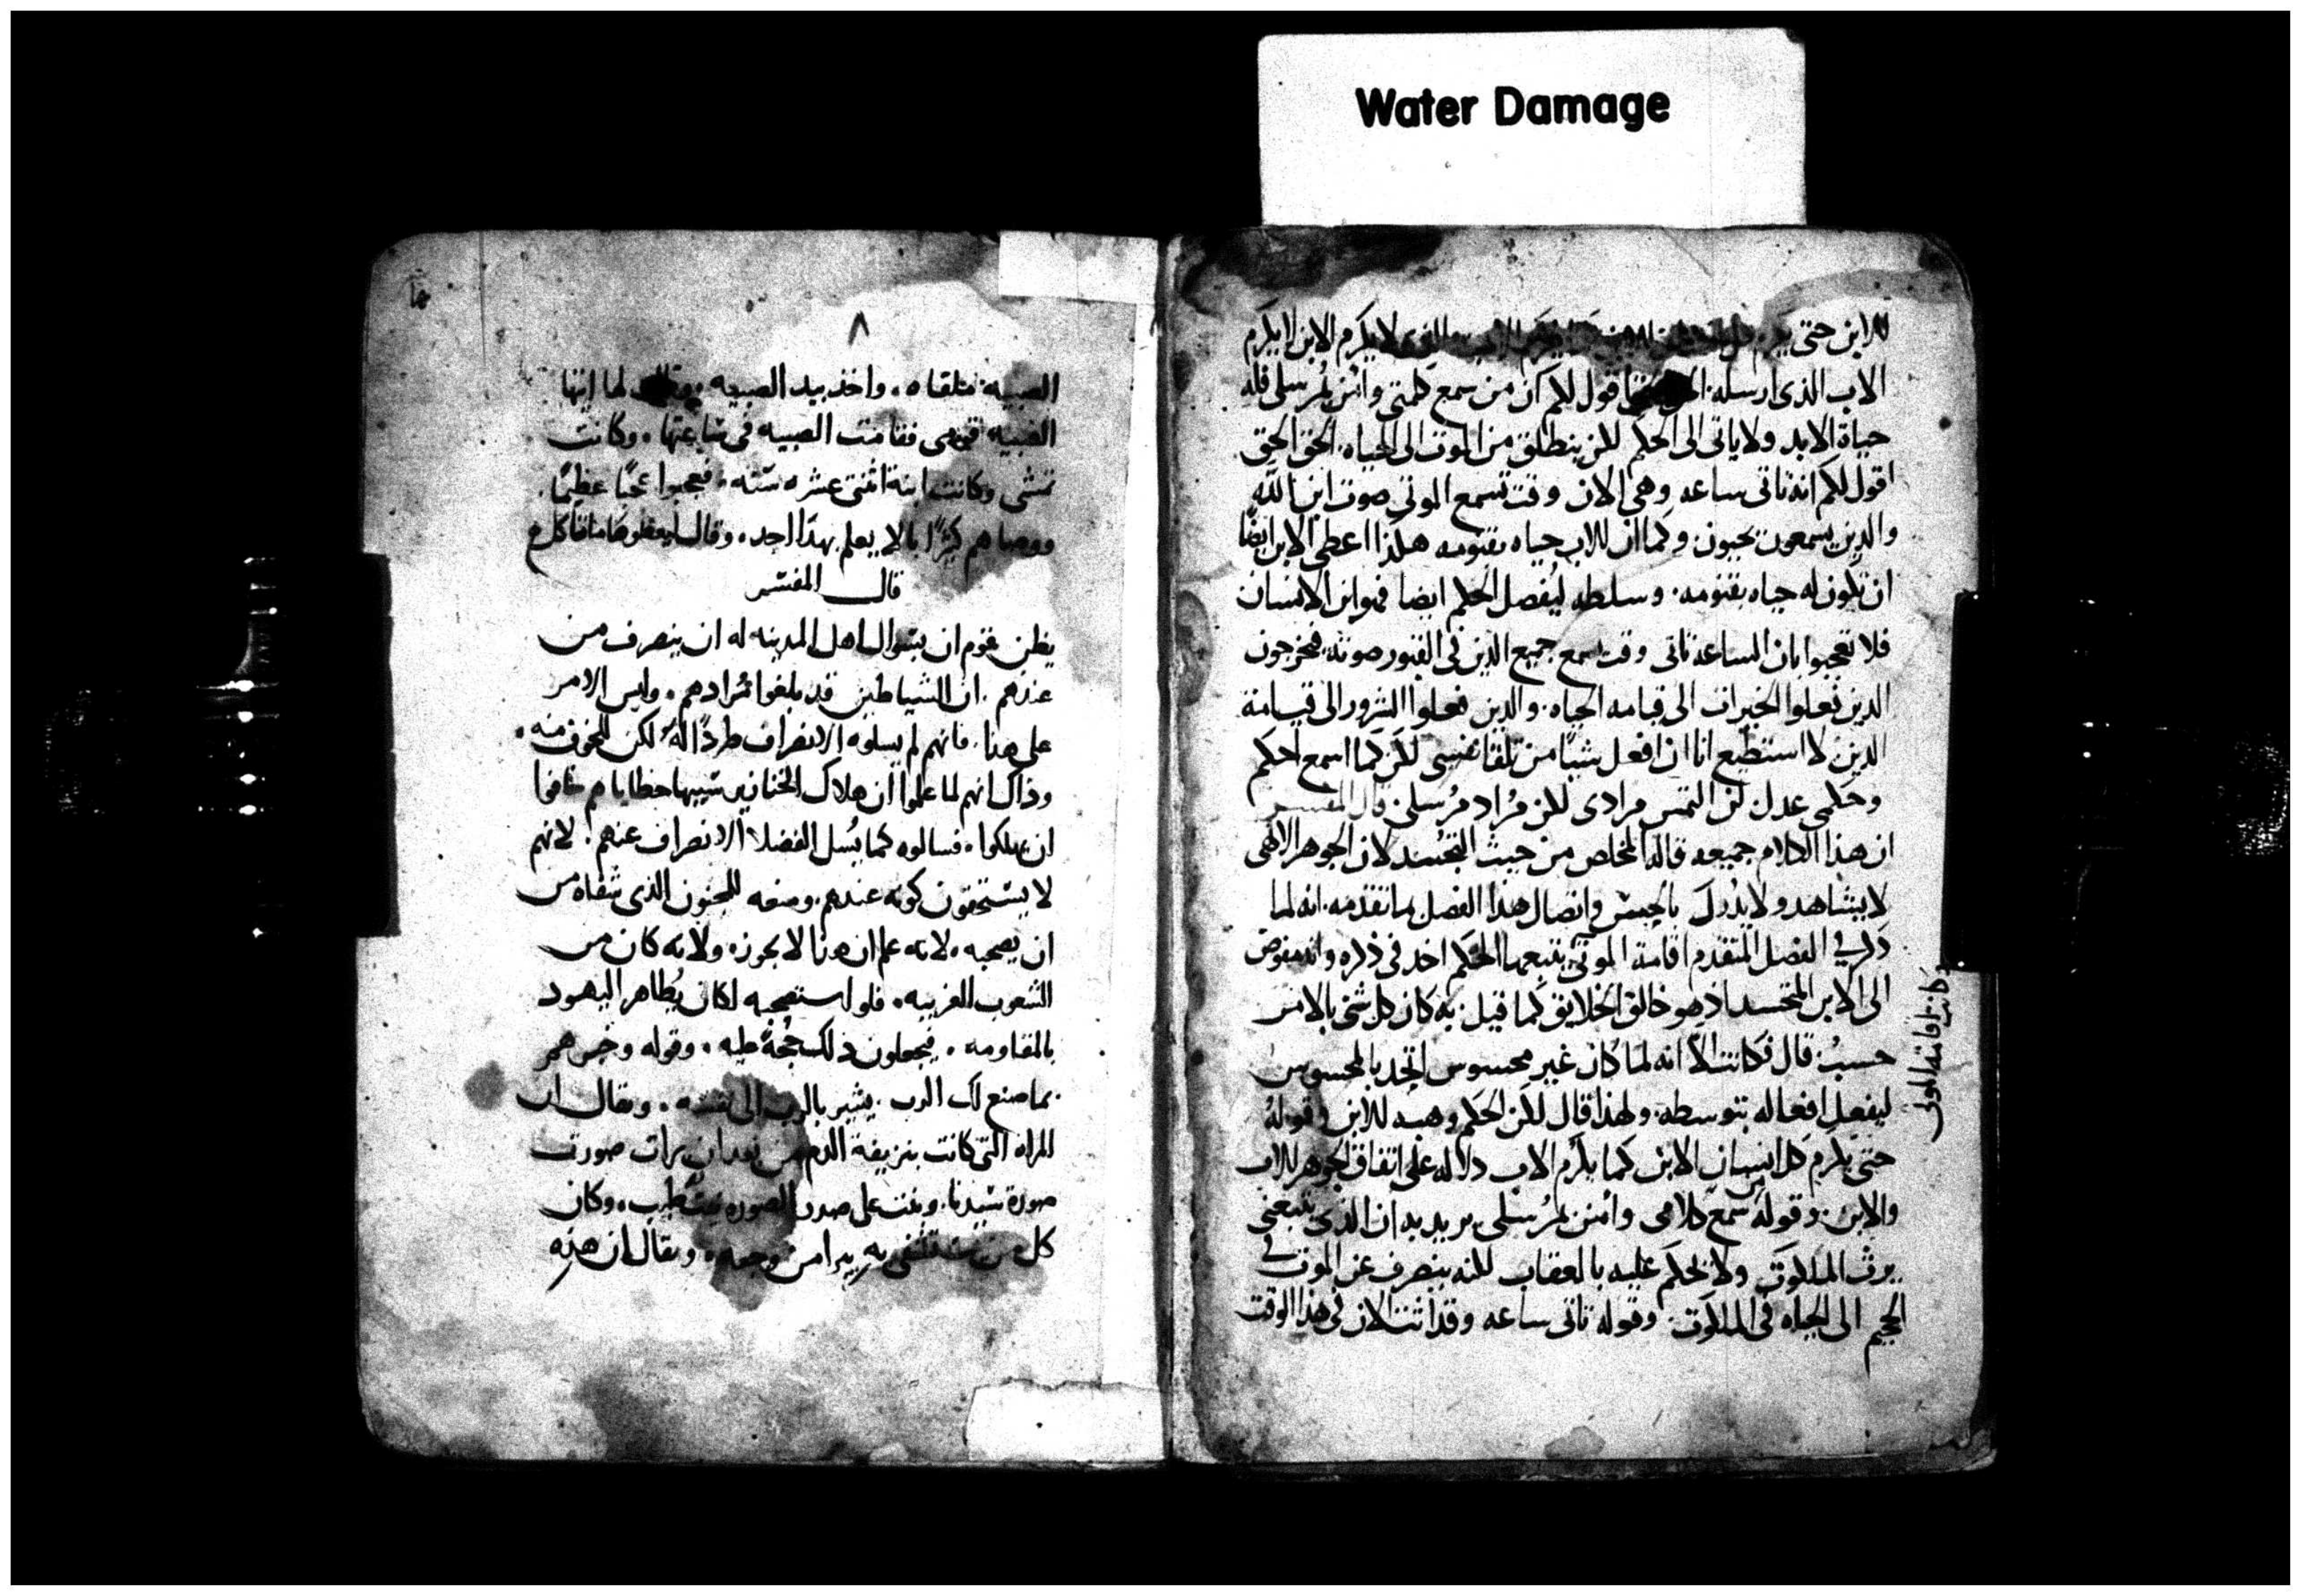 Water Damage
للابن حتى يكرم كل الابن لا يكرم الابن لا يكرم
الاب الذى ارسله اقول لكم ان من سمع كلمتى وائمن بمرسلى فله
حياة الابد ولا ياتى الى الحكم لكن ينطلق من الموت الى الحياه. الحق الحق
اقول لكم انه تاتى ساعه وهى الان وقت تسمع الموتى صوت ابن الله
والذين يسمعون يحيون وكما ان للاب حياه بقنومه هكذا اعطى الابن ايضًا
ان تكون له حياه بقنومه. وسلطه ليفصل الحكم ايضا فهو ابن الانسان
فلا تعجبوا بان الساعه تاتى وقت يسمع جميع الذين فى القبور صوته فيخرجون
الذين فعلوا الخيرات الى قيامه الحياه. والذين فعلوا الشرور الى قيامة
الدين لا استطيع انا ان افعل شيًا من تلقا نفسى لكن كما اسمع احكم
وحكمى عدل لن التمس مرادى لكن مُراد مُرسلى قال المفسر
ان هذا الكلام جميعه قاله المخلص من حيث التجسد لان الجوهر الالهى
لا يشاهد ولا يُدرك بالحس واتصال هذا الفصل بما تقدمه. انه لما
ذكر فى الفصل المتقدم اقامة الموتى يتبعها الحكم اخذ فى ذكره وانه مفوض
الى الابن المتجسد اذ هو خالق الخلايق كما قيل به كان كل شى بالامر
حسبُ قال فكانت الا انه لما كان غير محسوس اتحد بالمحسوس
ليفعل افعاله بتوسطه. ولهذا قال لكن الحكم وهبه للابن وقوله
حتى يكرم كل انسان الابن كما يكرم الاب دلاله على اتفاق الجوهر للاب
والابن. وقوله من سمع كلامى وائمن بمرسلى يريد به ان الذى يتبعنى
يرث الملكوت ولا يحكم عليه بالعقاب لكنه ينصرف عن الموت فى
الجحيم الى الحياه فى الملكوت. وقوله تاتى ساعه وقد اتت الان فى هذا الوقت
وكانت اقامة الموتى
٨
الصبيه متلقاه. واخذ بيد الصبيه. وقال لها ايتها
الصبيه قومى فقامت الصبيه فى ساعتها. وكانت
تمشى وكانت ابنة اثنتى عشره سنه. فعجبوا عجبًا عظيمًا.
ووصاهم كثيرًا بالا يعلم بهذا احد. وقال يعطوها ما تاكل
قال المفسر
يظن قوم ان بسوال اهل المدينه له ان ينصرف من
عندهم. ان الشياطين قد بلغوا مُرادهم. وليس الامر
على هذا. فانهم لم يسلوه الانصراف طردًا له لكن للخوف منه.
وذاك انهم لما علموا ان هلاك الخنازير سببها خطاياهم خافوا
ان يهلكوا. فسالوه كما يُسل الفضلا الانصراف عنهم. لانهم
لا يستحقون كونه عندهم. ومنعه للمجنون الذى شفاه من
ان يصحبه. لانه علم ان هذا لا يجوز. ولانه كان من
الشعوب الغريبه. فلو استصحبه لكان يُظاهر اليهود
بالمقاومه. فيجعلون ذلك حُجةً عليه. وقوله وخبرهم
بما صنع لك الرب. يشير بالرب الى نفسه. ويقال ان
المراه التى كانت بنزيفة الدم من بعد ان برات صورت
صورة سيدنا. وبنت على صدر الصوره. وكان
كل من يستشفى به يبرا من وجعه. ويقال ان هذه